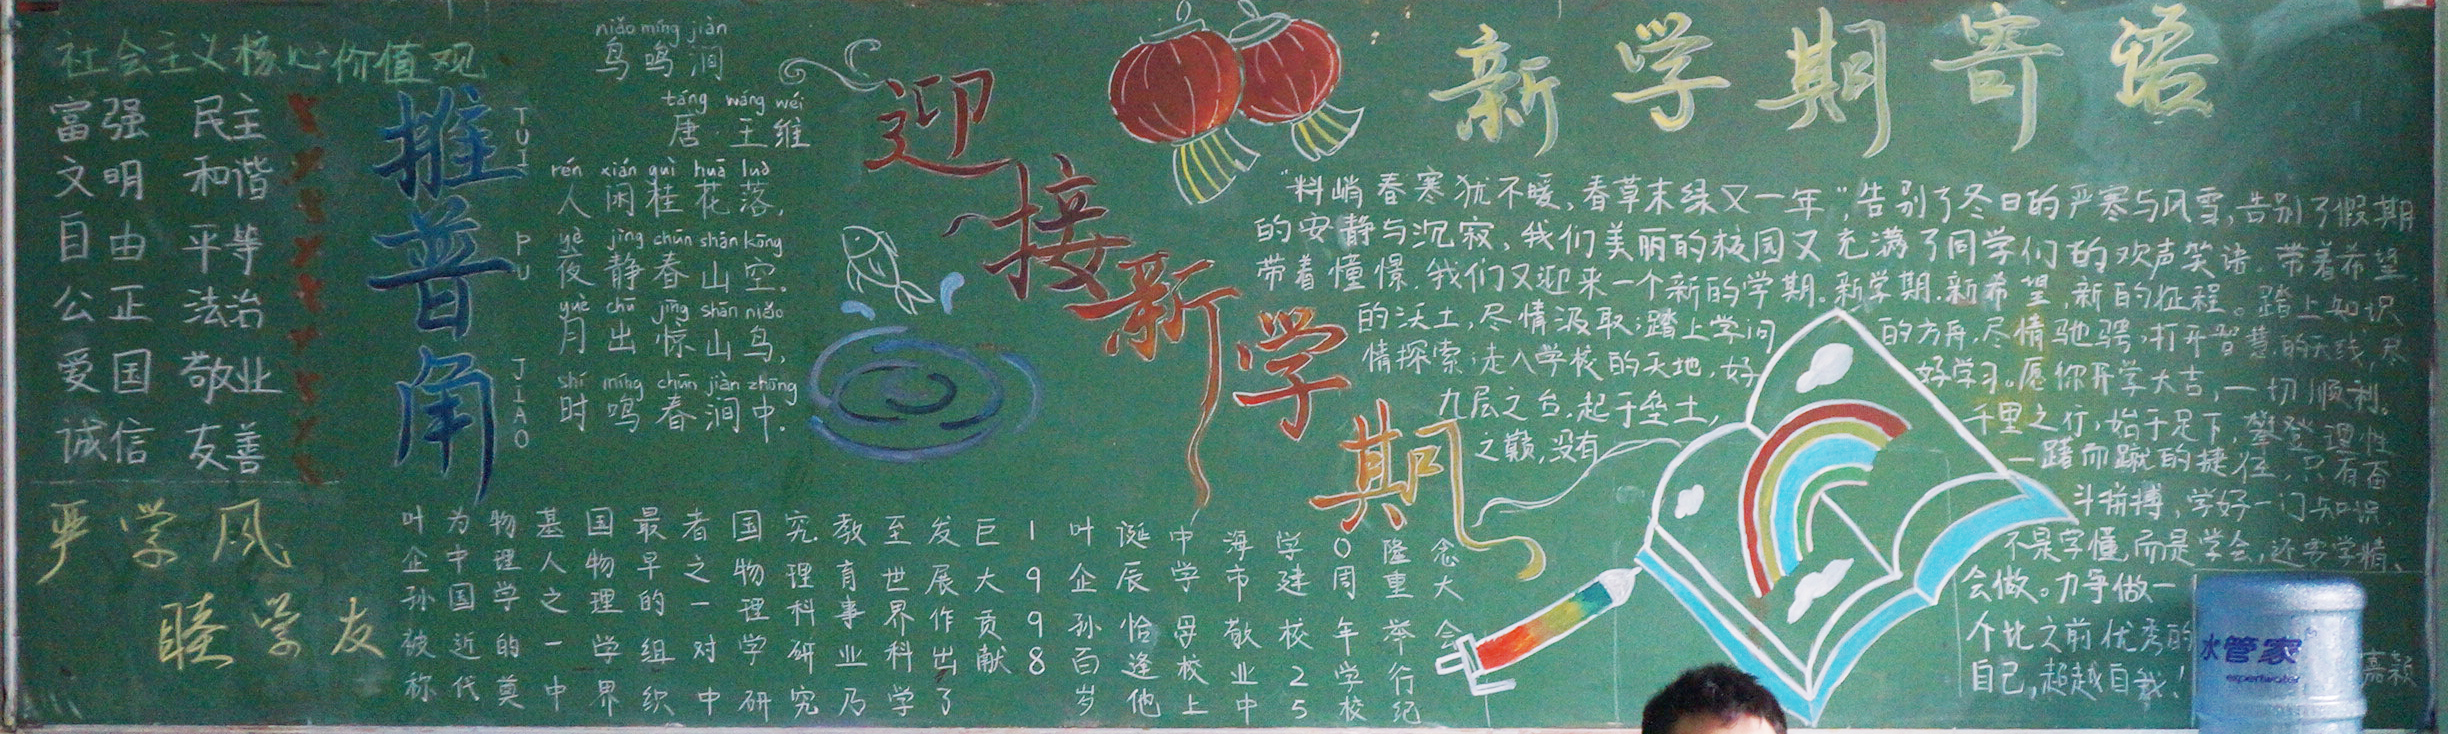 社会主义核心价值观
富强 民主
文明 和谐
自由 平等
公正 法治
爱国 敬业
诚信 友善
严学风
睦学友
推普角
TUI PU JIAO
niǎo míng jiàn
鸟鸣涧
táng wáng wéi
唐·王维
rén xián guì huā luò
人闲桂花落,
yè jìng chūn shān kōng
夜静春山空.
yuè chū jīng shān niǎo
月出惊山鸟,
shí míng chūn jiàn zhōng
时鸣春涧中.
叶企孙被称
为中国近代
物理学的奠
基人之一中
国物理学界
最早的组织
者之一对中
国物理学研
究理科研究
教育事业乃
至世界科学
发展作出了
巨大贡献
1998
叶企孙百岁
诞辰恰逢他
中学母校上
海市敬业中
学建校25
0周年学校
隆重举行纪
念大会
迎接新学期
新学期寄语
"料峭春寒犹不暖,春草末绿又一年",告别了冬日的严寒与风雪,告别了假期
的安静与沉寂,我们美丽的校园又充满了同学们的欢声笑语.带着希望,
带着憧憬.我们又迎来一个新的学期.新学期.新希望,新的征程。踏上知识
的沃土,尽情汲取;踏上学问的方舟,尽情驰骋;打开智慧的天线,尽
情探索;走入学校的天地,好好学习。愿你开学大吉,一切顺利。
九层之台.起于垒土,千里之行,始于足下,攀登理性
之巅,没有一蹴而蹴的捷径,只有奋
斗拼搏,学好一门知识,
不是字懂,而是学会,还要学精、
会做。力争做一
个比之前优秀的
自己,超越自我!
嘉颖
水管家
expertwater